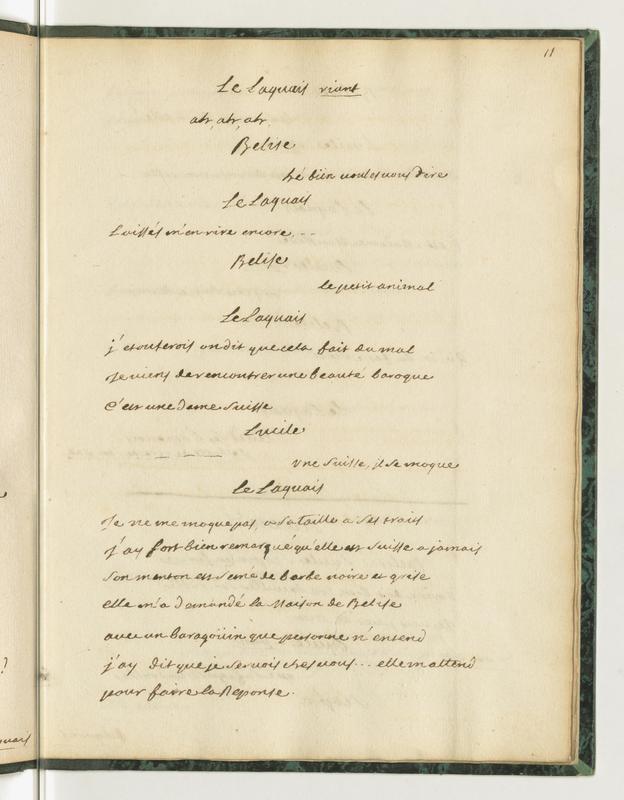 11
Le Laquais riant
ah, ah, ah,
Belise
hé bien voulés vous dire
Le Laquais
Laissés m'en rire encore, --
Belise
le petit animal
Le Laquais
j'etouferois on dit que cela fait du mal
Je viens de rencontrer une beauté baroque
C'est une dame Suisse
Lucile
une Suisse, il se moque
Le Laquais
Je ne me moque pas, a sa taille a ses trais
j'ay fort bien remarqué qu'elle est Suisse a jamais
Son menton est semé de barbe noire et grise
elle m'a demandé la Maison de Belise
avec un baragöüin que personne n'entend
j'ay dit que je servois ches vous... elle m'attend
pour faire la Reponse.
?
quais